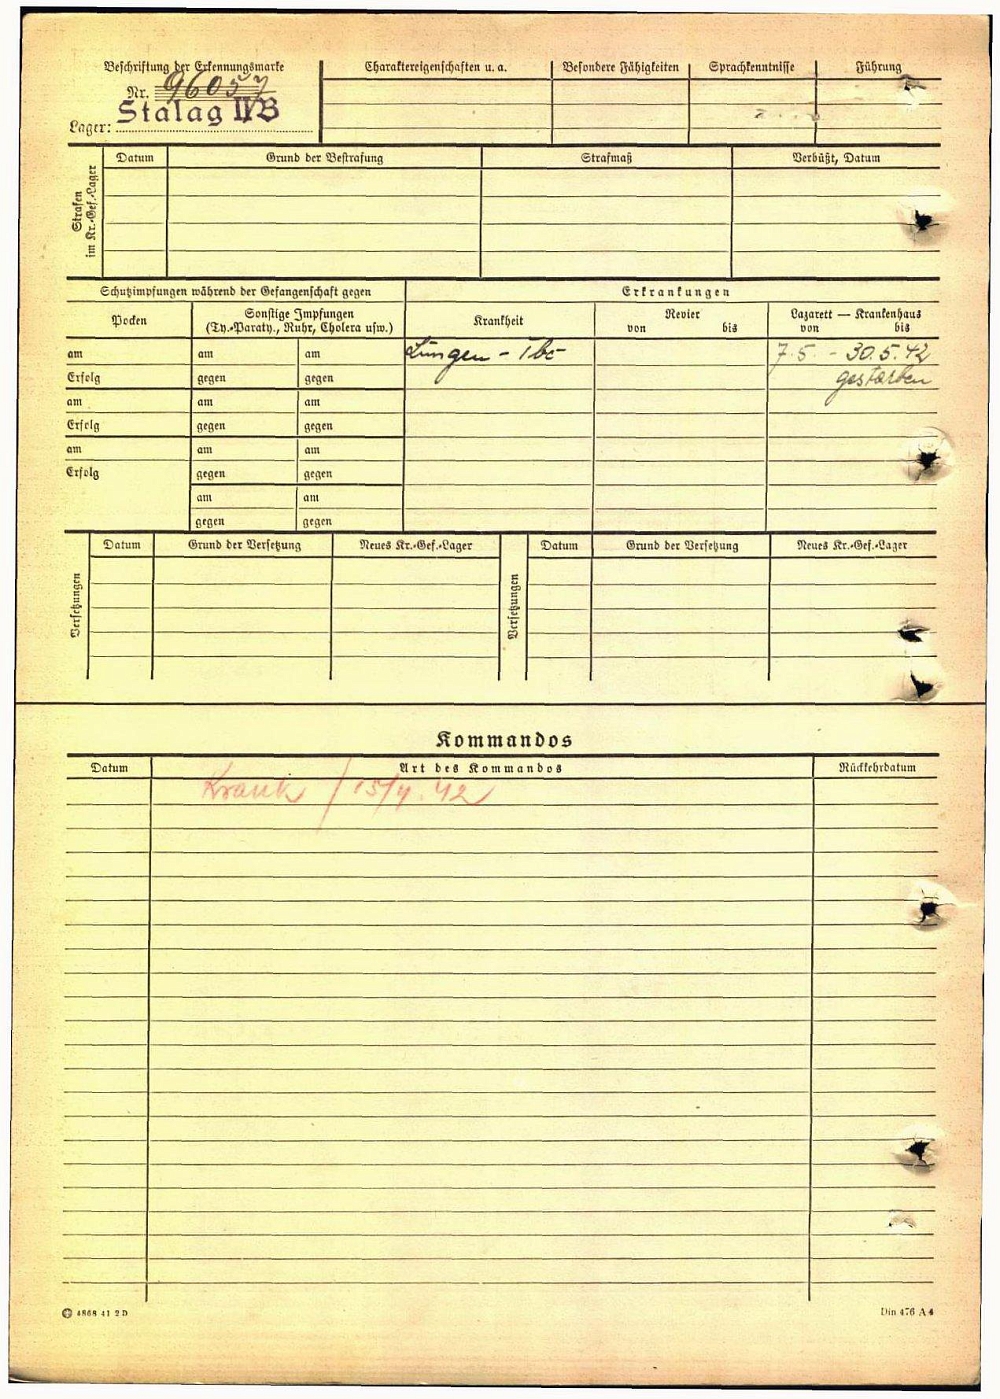 Beschriftung der Erkennungsmarke
Nr. 96057
Lager: Stalag IVB
Charaktereigenschaften u. a.
Besondere Fähigkeiten
Sprachkenntnisse
Führung
Strafen im Kr.-Gef.-Lager
Datum Grund der Bestrafung Strafmaß Verbüßt, Datum
Schutzimpfungen während der Gefangenschaft gegen
Erkrankungen
Pocken
Sonstige Impfungen
(Ty.-Paraty., Ruhr, Cholera usw.)
Krankheit
Revier
von bis
Lazarett — Krankenhaus
von bis
am am am Lungen - Tbc 7.5. - 30.5.42
Erfolg gegen gegen gestorben
am am am
Erfolg gegen gegen
am am am
Erfolg gegen gegen
am am
gegen gegen
Versetzungen
Datum Grund der Versetzung Neues Kr.-Gef.-Lager
Versetzungen
Datum Grund der Versetzung Neues Kr.-Gef.-Lager
Kommandos
Datum Art des Kommandos Rückkehrdatum
Krank / 15/4. 42
4868 41 2 D
Din 476 A 4